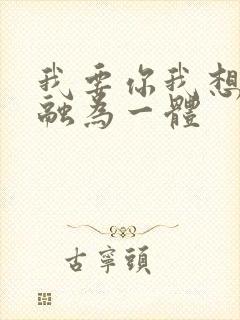 我要你我想
融為一體
古寧頭